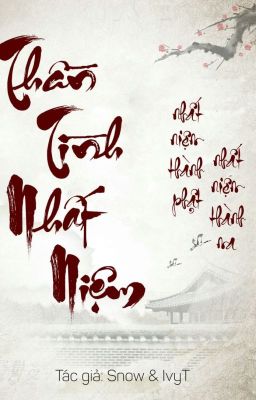 Thần
Tình
Nhất
Niệm
nhất
niệm
thành
phật
nhất
niệm
thành
ma
Tác giả: Snow & IvyT